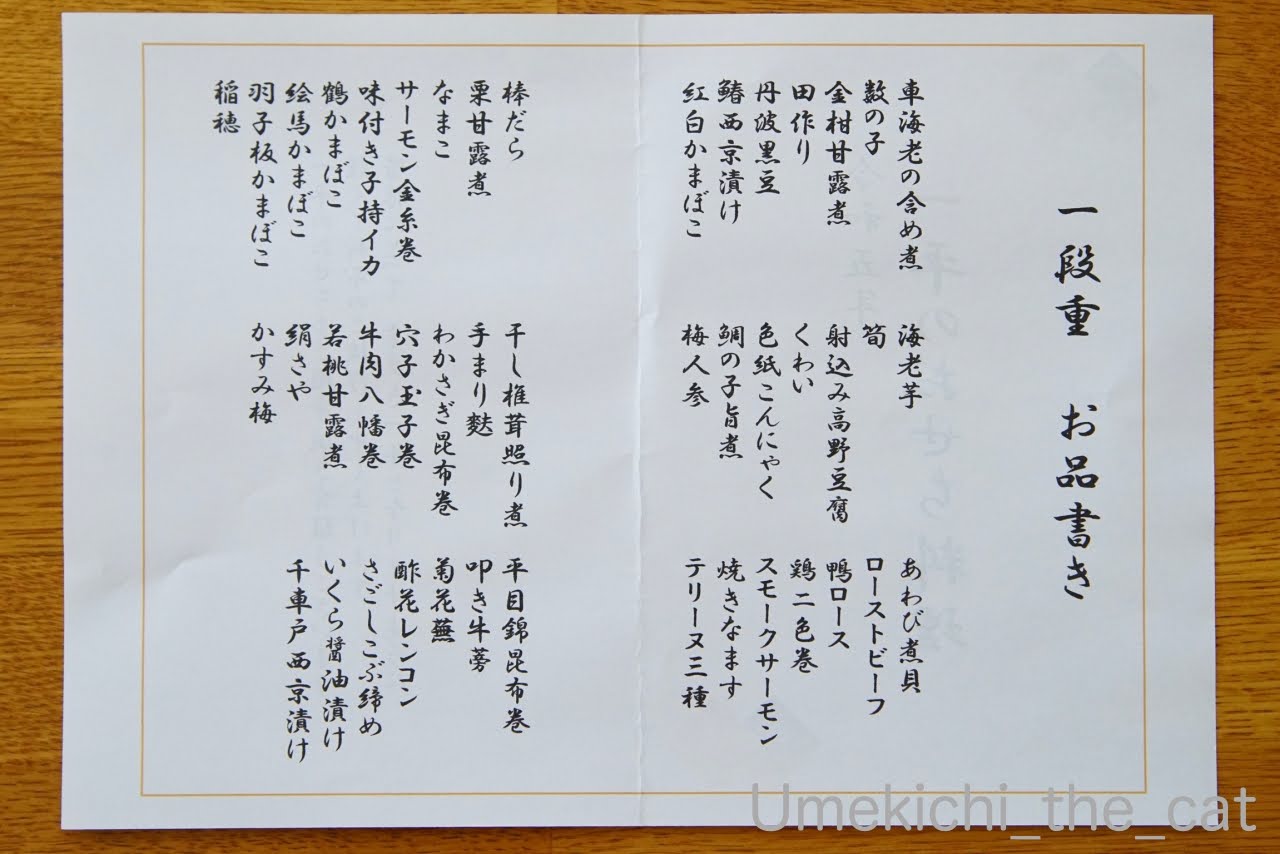 一段重 お品書き
車海老の含め煮
数の子
金柑甘露煮
田作り
丹波黒豆
鰆西京漬け
紅白かまぼこ
海老芋
筍
射込み高野豆腐
くわい
色紙こんにゃく
鯛の子旨煮
梅人参
あわび煮貝
ローストビーフ
鴨ロース
鶏二色巻
スモークサーモン
焼きなます
テリーヌ三種
棒だら
栗甘露煮
なまこ
サーモン金糸巻
味付き子持イカ
鶴かまぼこ
絵馬かまぼこ
羽子板かまぼこ
稲穂
干し椎茸照り煮
手まり麩
わかさぎ昆布巻
穴子玉子巻
牛肉八幡巻
若桃甘露煮
絹さや
かすみ梅
平目錦昆布巻
叩き牛蒡
菊花蕪
酢花レンコン
さごしこぶ締め
いくら醤油漬け
千車戸西京漬け
Umekichi_the_cat